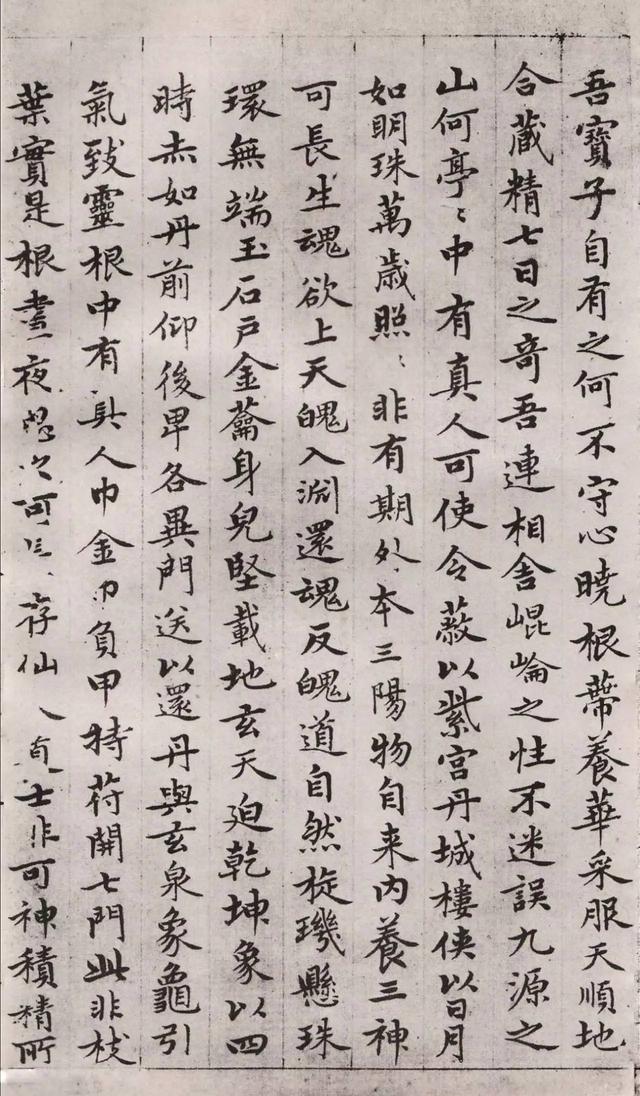 吾寶子自有之何不守心曉根蔕養華采服天順地
合藏精七日之奇吾連相舍崐崘之性不迷誤九源之
山何亭〻中有真人可使令蔽以紫宮丹城樓俠以日月
如明珠萬歲照〻非有期外本三陽物自来内養三神
可長生魂欲上天魄入淵還魂反魄道自然旋璣懸珠
環無端玉石戶金籥身皃堅載地玄天迫乾坤象以四
時赤如丹前仰後卑各異門送以還丹與玄泉象龜引
氣致靈根中有真人巾金巾負甲持苻開七門此非枝
葉實是根晝夜思之可存仙士非可神積精所